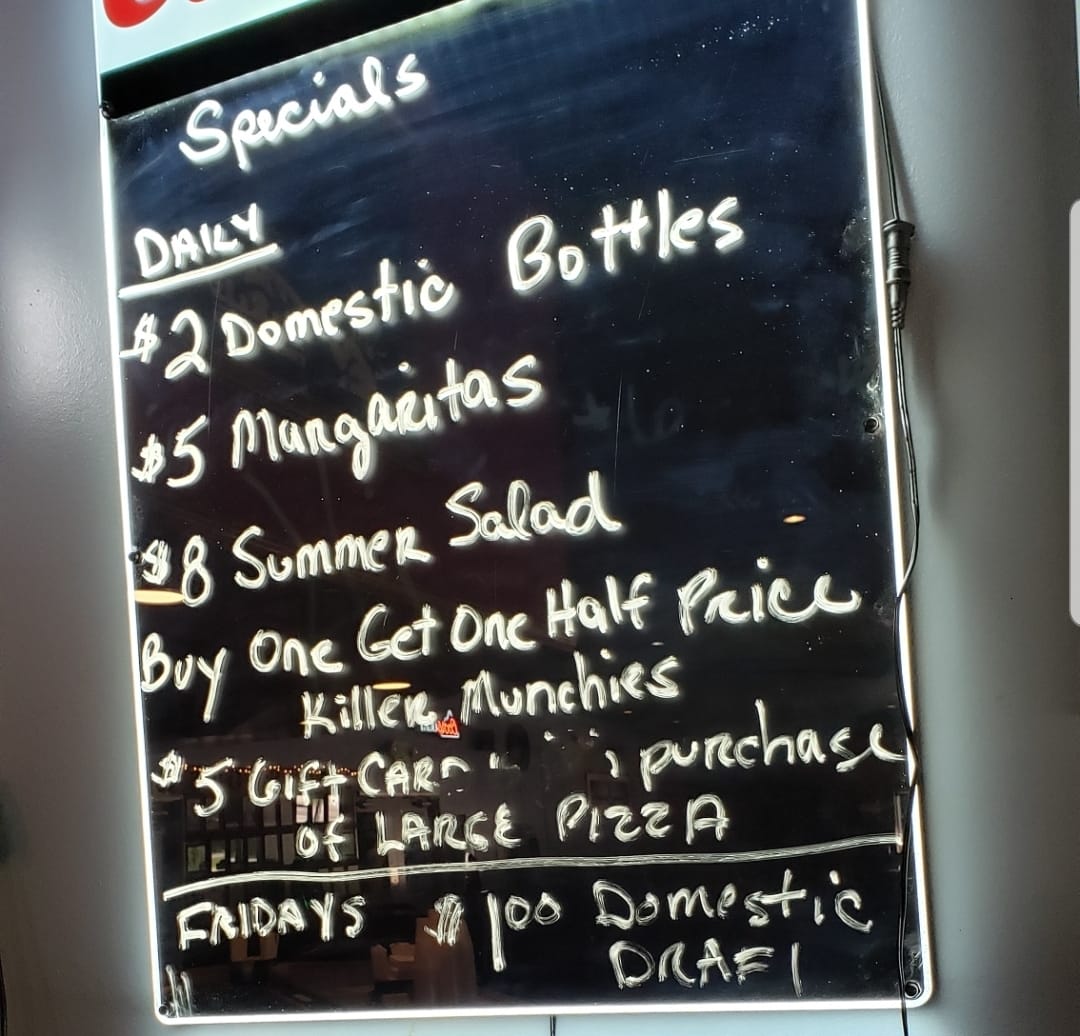 Specials
DAILY
$2 Domestic Bottles
$5 Margaritas
$8 Summer Salad
Buy One Get One Half Price
Killer Munchies
$5 Gift CARD purchase
of LARGE PIZZA
FRIDAYS $100 Domestic
DRAFT